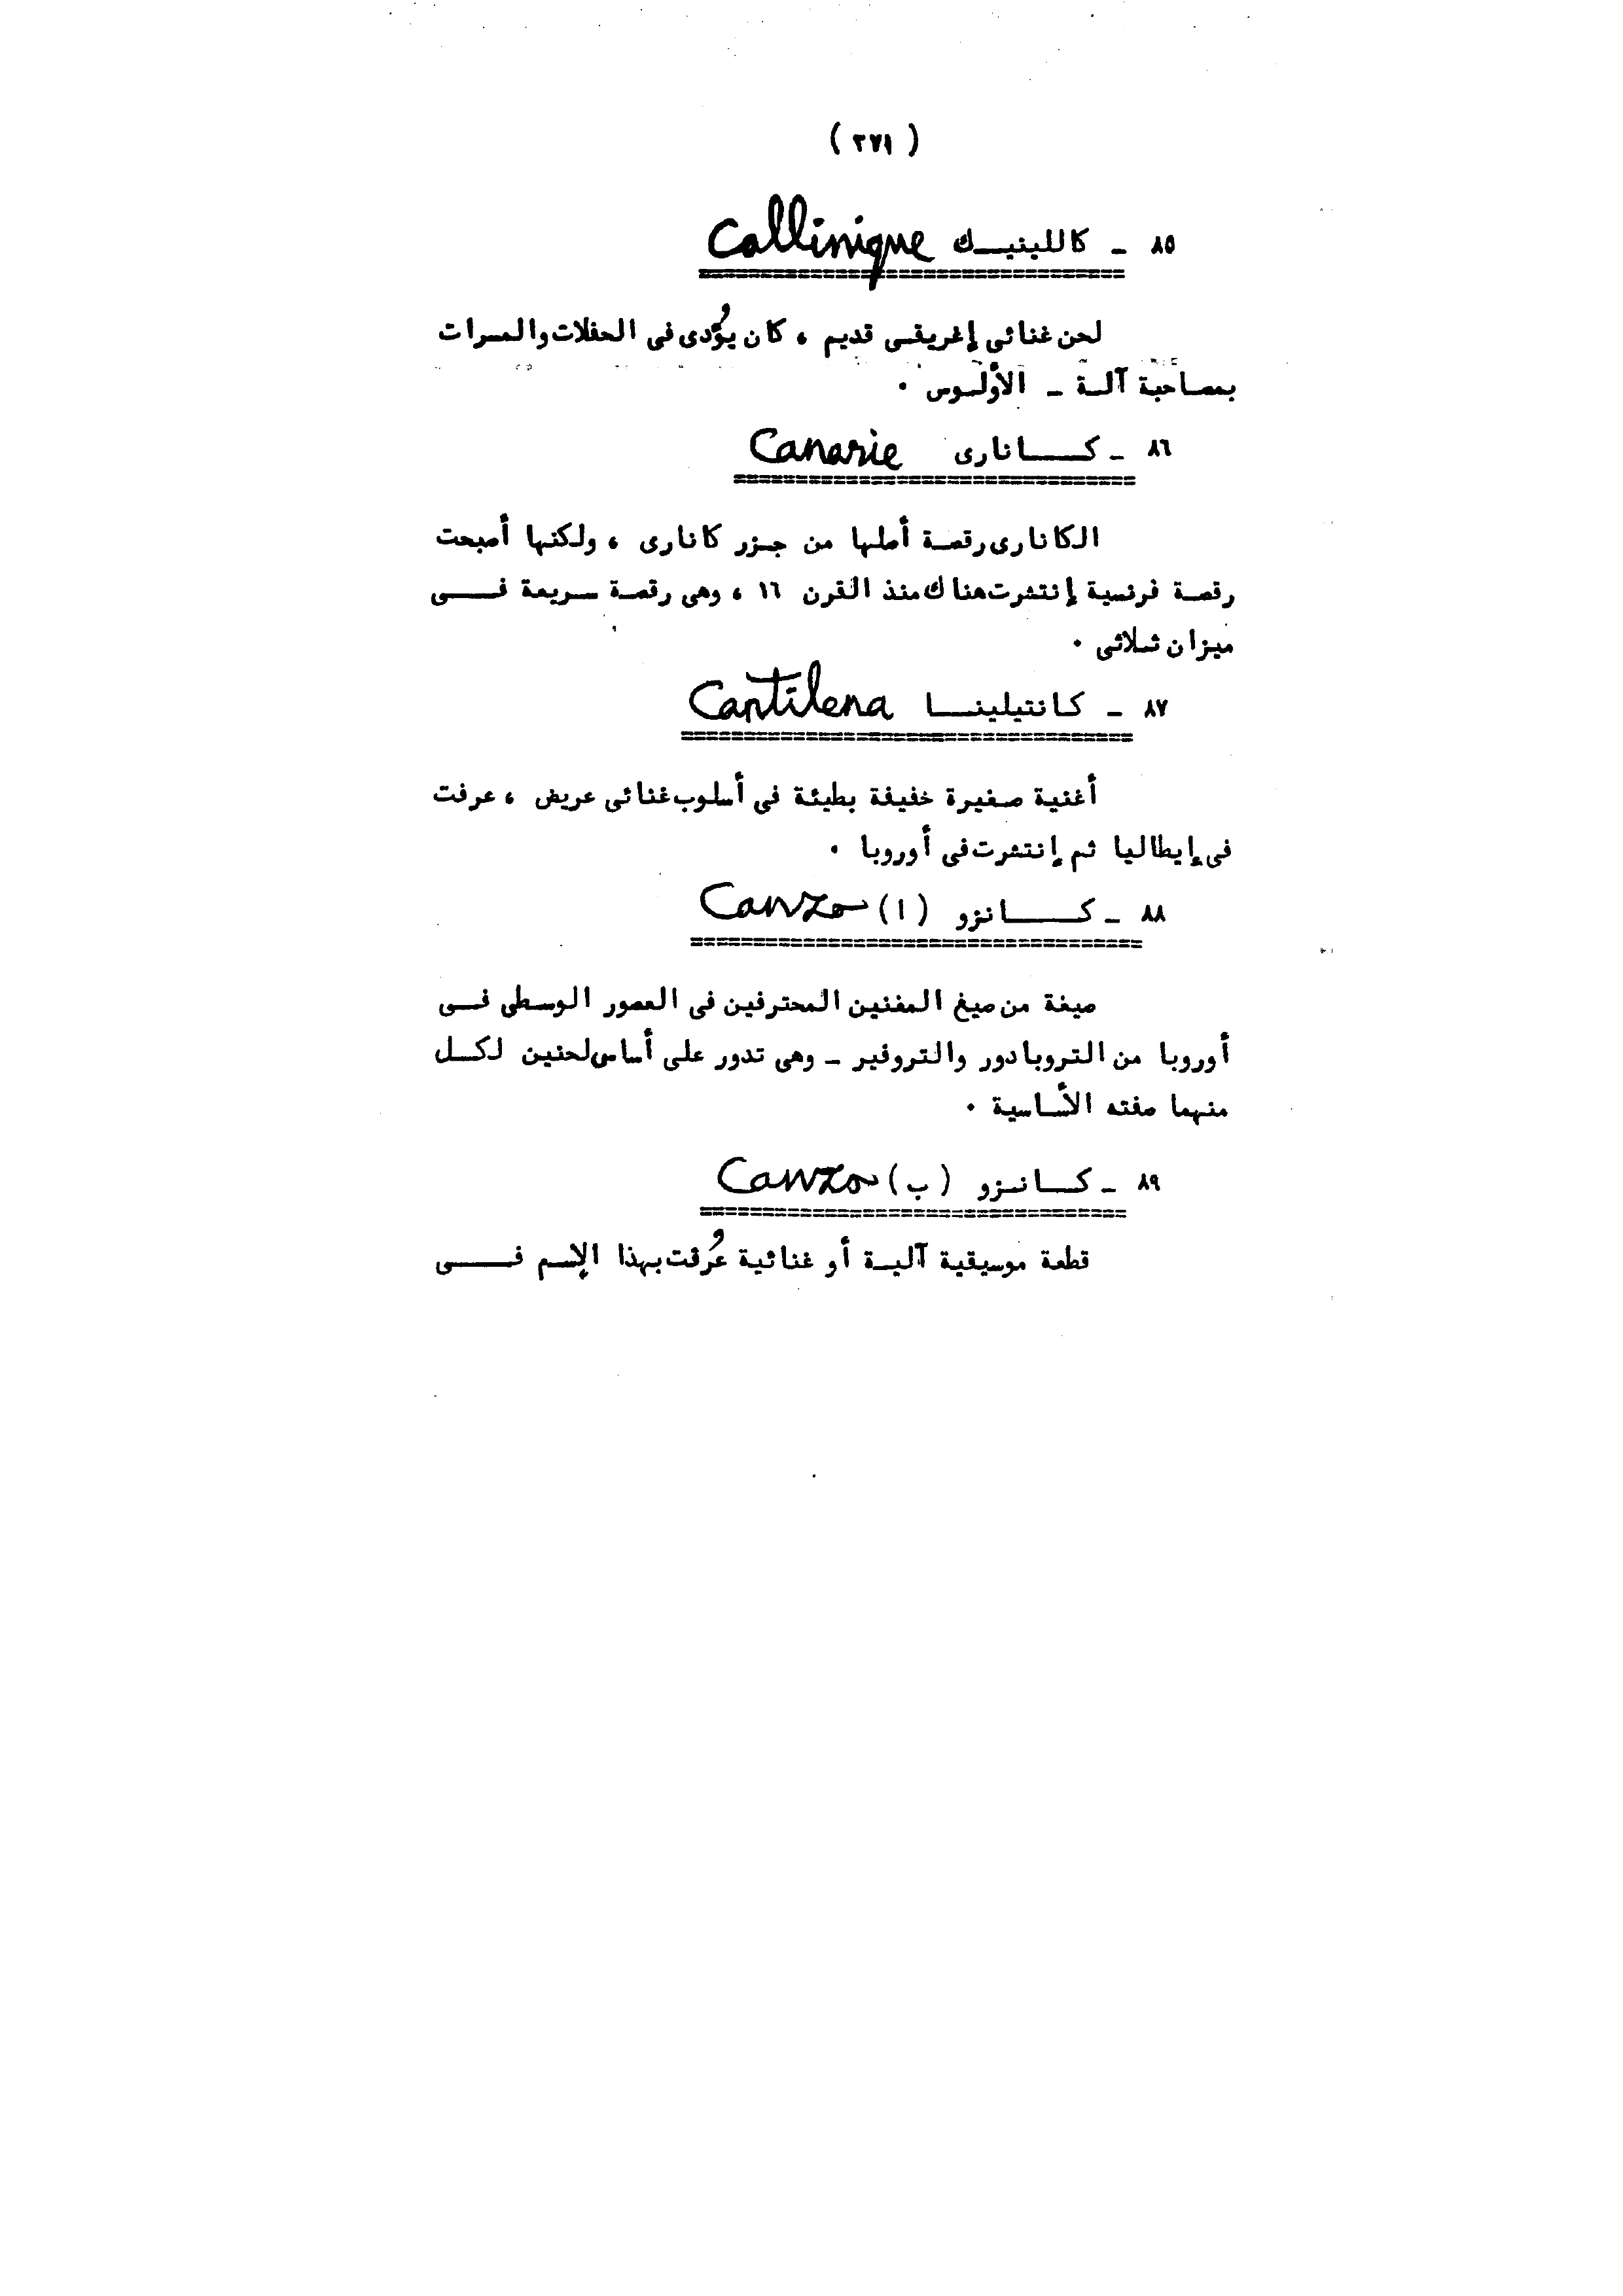 ( ٢٧١ )
٨٥ ـ كاللينيك Callinique
لحن غنائى إغريقى قديم ، كان يُؤدى فى الحفلات والمسرات
بمصاحبة آلة ـ الأولوس ٠
٨٦ ـ كانارى Canarie
الكانارى رقصة أصلها من جزر كانارى ، ولكنها أصبحت
رقصة فرنسية إنتشرت هناك منذ القرن ١٦ ، وهى رقصة سريعة فى
ميزان ثلاثى ٠
٨٧ ـ كانتيلينا Cantilena
أغنية صغيرة خفيفة بطيئة فى أسلوب غنائى عريض ، عرفت
فى إيطاليا ثم إنتشرت فى أوروبا ٠
٨٨ ـ كانزو (ا) Canzo
صيغة من صيغ المغنين المحترفين فى العصور الوسطى فى
أوروبا من التروبادور والتروفير ـ وهى تدور على أساس لحنين لكل
منهما صفته الأساسية ٠
٨٩ ـ كانزو (ب) Canzo
قطعة موسيقية آلية أو غنائية عُرفت بهذا الإسم فى